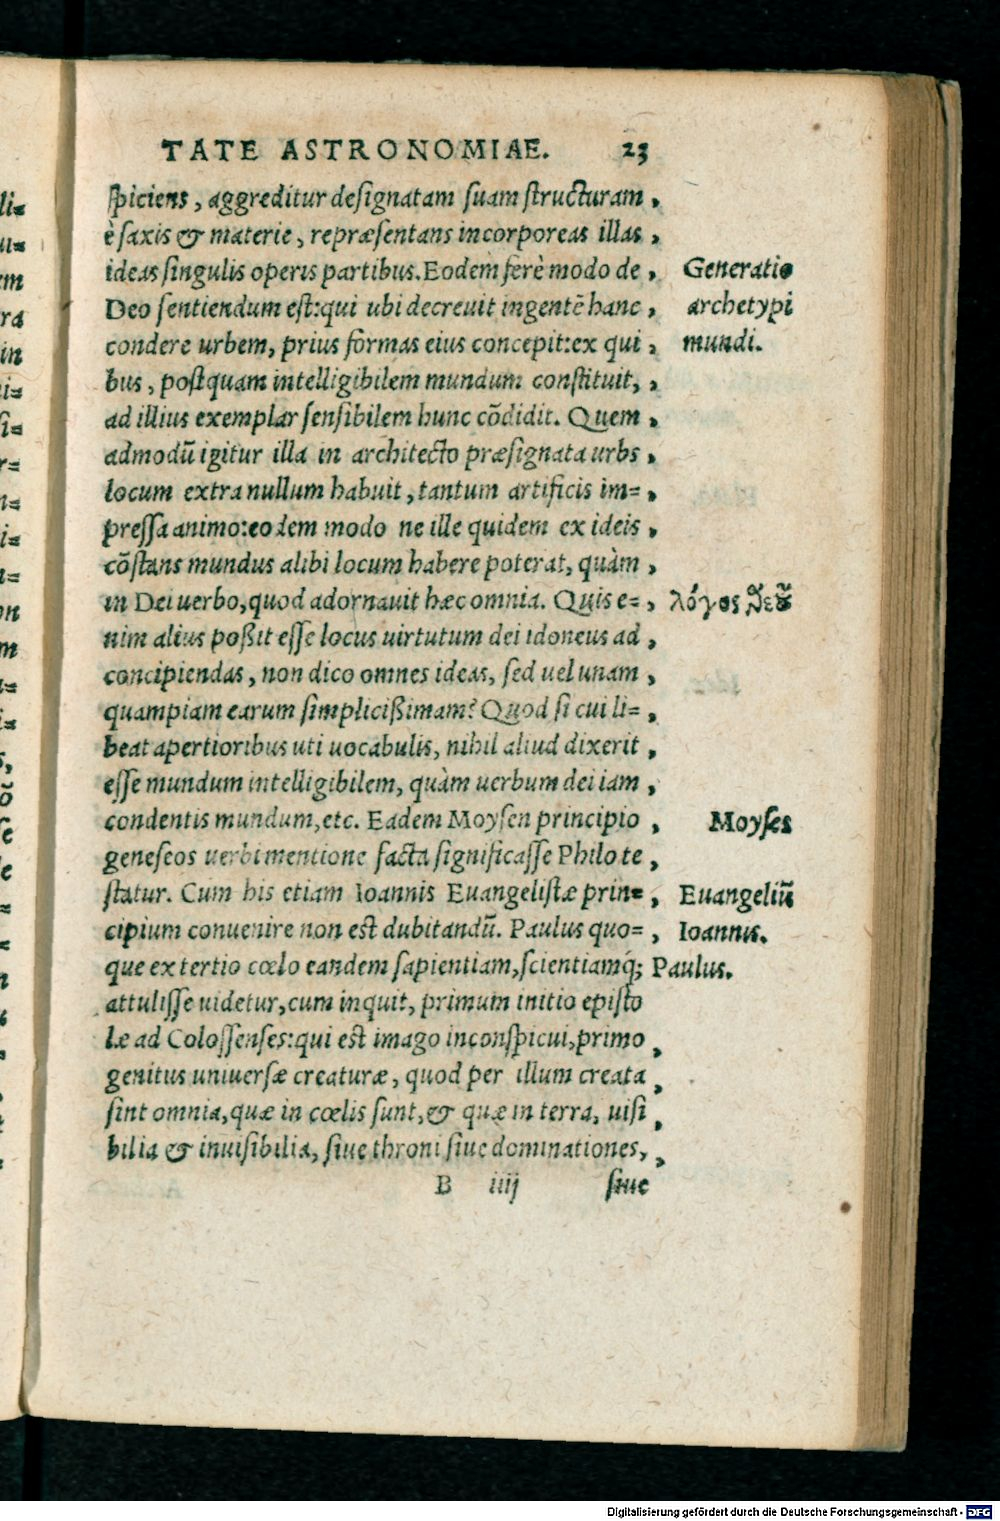 TATE ASTRONOMIAE. 23
spiciens, aggreditur designatam suam structuram ,
è saxis & materie, repræsentans incorporeas illas ,
ideas singulis operis partibus. Eodem ferè modo de , Generatio
Deo sentiendum est: qui ubi decreuit ingentẽ hanc , archetypi
condere urbem, prius formas eius concepit: ex qui , mundi.
bus, postquam intelligibilem mundum constituit, ,
ad illius exemplar sensibilem hunc cõdidit. Quem ,
admodũ igitur illa in architecto præsignata urbs ,
locum extra nullum habuit, tantum artificis im= ,
pressa animo: eodem modo ne ille quidem ex ideis ,
cõstans mundus alibi locum habere poterat, quàm ,
in Dei uerbo, quod adornauit hæc omnia. Quis e= , λόγος θεοῦ
nim alius poßit esse locus uirtutum dei idoneus ad ,
concipiendas, non dico omnes ideas, sed uel unam ,
quampiam earum simplicißimam? Quod si cui li= ,
beat apertioribus uti uocabulis, nihil aliud dixerit ,
esse mundum intelligibilem, quàm uerbum dei iam ,
condentis mundum, etc. Eadem Moysen principio , Moyses
geneseos uerbi mentione facta significasse Philo te ,
statur. Cum his etiam Ioannis Euangelistæ prin= , Euangeliũ
cipium conuenire non est dubitandũ. Paulus quo= , Ioannis.
que ex tertio cœlo eandem sapientiam, scientiamq; Paulus.
attulisse uidetur, cum inquit, primum initio episto
læ ad Colossenses: qui est imago inconspicui, primo ,
genitus uniuersæ creaturæ, quod per illum creata ,
sint omnia, quæ in cœlis sunt, & quæ in terra, uisi ,
bilia & inuisibilia, siue throni siue dominationes, ,
B iiij siue
li=
u=
em
ra
in
i=
si=
r=
n=
i=
t=
on
m
a=
i=
s,
õ
se
le
=
Digitalisierung gefördert durch die Deutsche Forschungsgemeinschaft - DFG